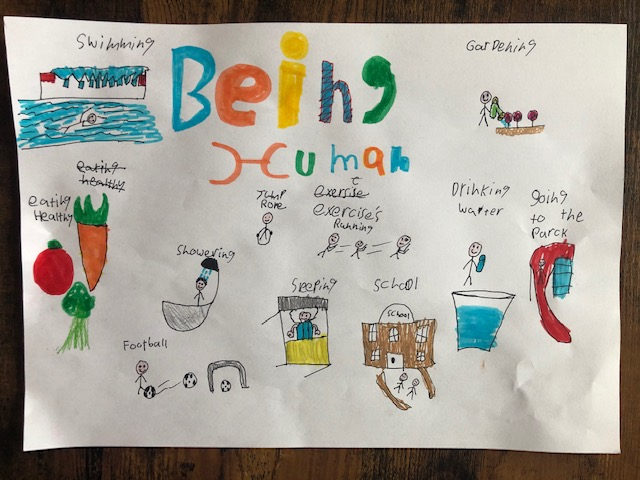 Swimming
Being
Human
Gardening
eating
healthy
eating
Healthy
Jump
Rope
exercise
exercise's
Running
Drinking
warter
going
to the
Parck
Showering
Sleeping
School
School
Football